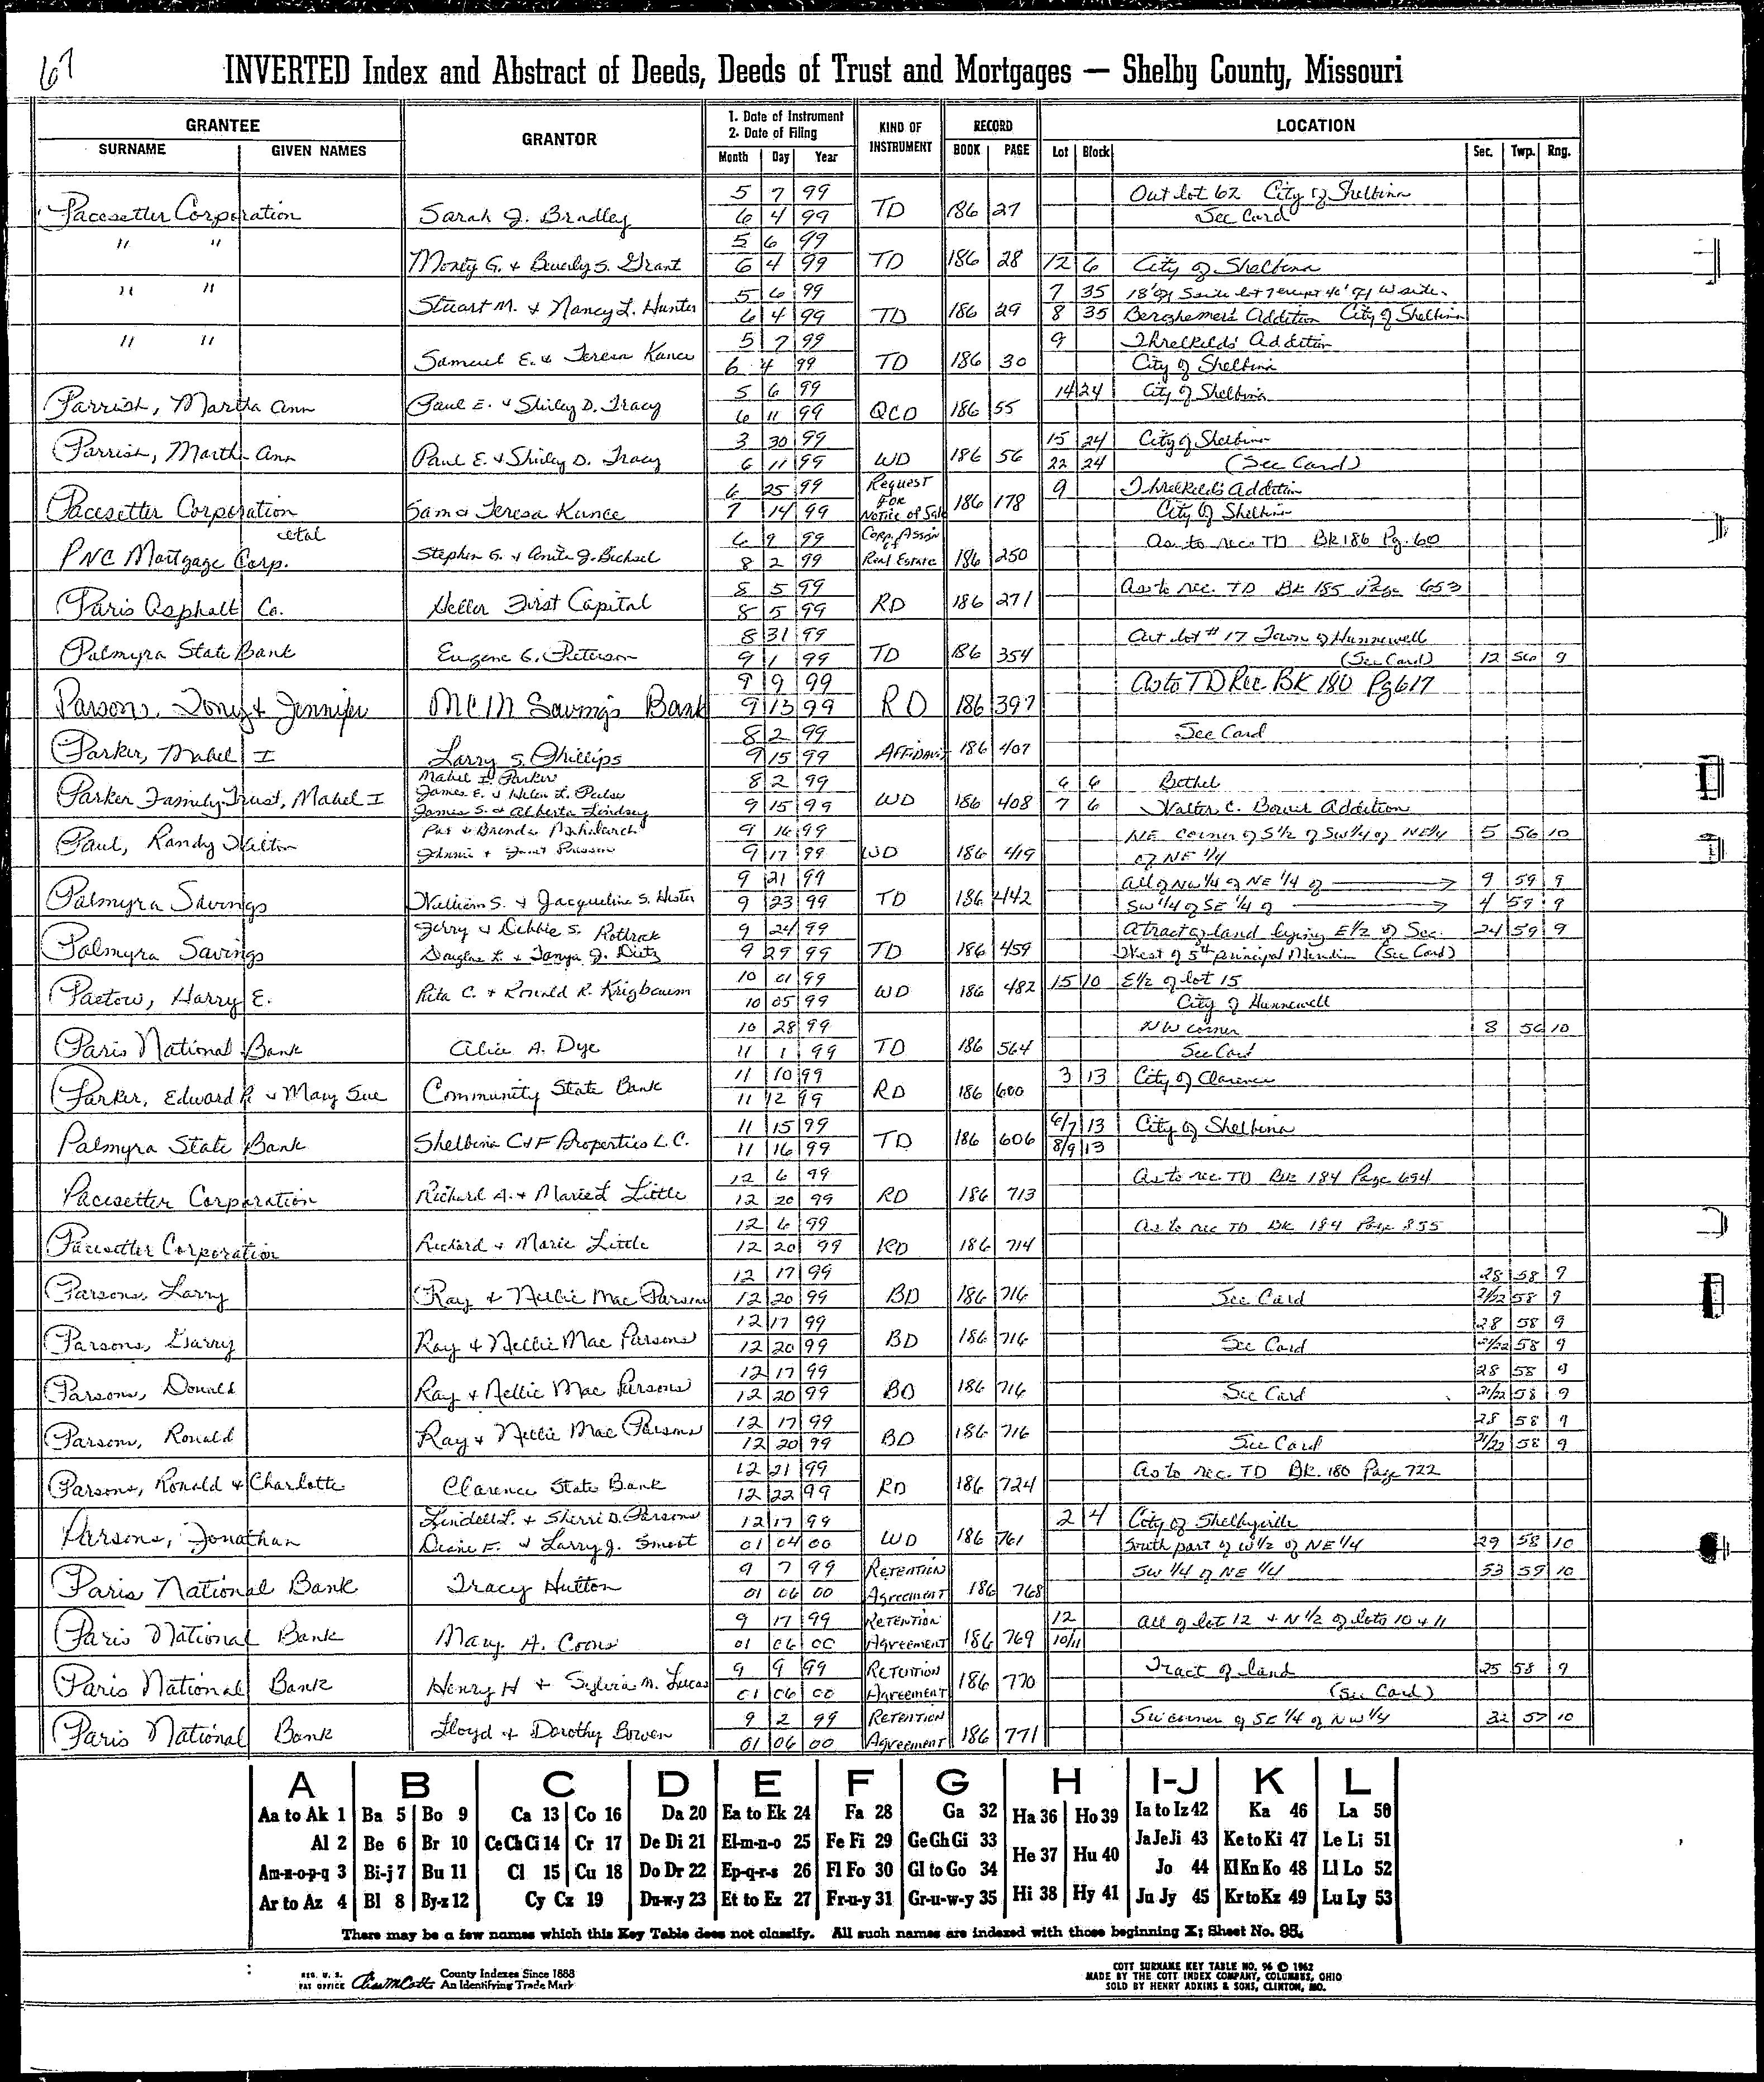 67
INVERTED Index and Abstract of Deeds, Deeds of Trust and Mortgages — Shelby County, Missouri
GRANTEE
SURNAME GIVEN NAMES
GRANTOR
1. Date of Instrument
2. Date of Filing
Month Day Year
KIND OF INSTRUMENT
RECORD
BOOK PAGE
LOCATION
Lot Block Sec. Twp. Rng.
5 7 99 Out lot 62 City of Shelbina
Pacesetter Corporation Sarah J. Bradley 6 4 99 TD 186 27 See Card
" " 5 6 99
Monty G. & Beverly S. Grant 6 4 99 TD 186 28 12 6 City of Shelbina
" " 5 6 99 7 35 18' of S side lot 7 except 40' of W side.
Stuart M. & Nancy L. Hunter 6 4 99 TD 186 29 8 35 Berghemer's Addition City of Shelbina
" " 5 7 99 9 Threlkelds' Addition
Samuel E. & Teresa Kunce 6 4 99 TD 186 30 City of Shelbina
5 6 99 14 24 City of Shelbina
Parrish, Martha Ann Paul E. & Shirley D. Tracy 6 11 99 QCD 186 55
3 30 99 15 24 City of Shelbina
Parrish, Martha Ann Paul E. & Shirley D. Tracy 6 11 99 WD 186 56 22 24 (See Card)
6 25 99 Request 9 Threlkeld's Addition
Pacesetter Corporation Sam & Teresa Kunce 7 14 99 For Notice of Sale 186 178 City of Shelbina
etal 6 9 99 Corp. Assign of As to rec. TD BK 186 Pg. 60
PNC Mortgage Corp. Stephen G. & Anita J. Bichsel 8 2 99 Real Estate 186 250
8 5 99 As to rec. TD BK 185 Page 653
Paris Asphalt Co. Heller First Capital 8 5 99 RD 186 271
8 31 99 Out lot #17 Town of Hunnewell
Palmyra State Bank Eugene G. Peterson 9 1 99 TD 186 354 (See Card) 12 56 9
9 9 99 As to TD Rec. BK 180 Pg 617
Parsons, Tony & Jennifer MCM Savings Bank 9 13 99 RD 186 397
8 2 99 See Card
Parker, Mabel I Larry S. Phillips 9 15 99 Affidavit 186 407
Mabel I. Parker 8 2 99 6 6 Bethel
Parker Family Trust, Mabel I James E. & Helen L. 9 15 99 WD 186 408 7 6 Walter C. Addition
James S. & Alberta Lindsey
Pat & Brenda 9 16 99 NE corner of S½ of SW¼ of NE¼ 5 56 10
Paul, Randy Wilton 9 17 99 WD 186 419 of NE ¼
9 21 99 All of NW ¼ of NE ¼ of 9 59 9
Palmyra Savings William S. & Jacqueline S. Hester 9 23 99 TD 186 442 SW ¼ of SE ¼ of 4 59 9
Jerry & Debbie S. Rothrock 9 24 99 A tract of land lying E½ of Sec. 24 59 9
Palmyra Savings Douglas L. & Tanya J. Dietz 9 29 99 TD 186 459 West of 5th principal Meridian (See Card)
10 01 99 15 10 E½ of lot 15
Pastow, Harry E. Rita C. & Ronald R. Krigbaum 10 05 99 WD 186 482 City of Hunnewell
10 28 99 NW corner 8 56 10
Paris National Bank Alice A. Dye 11 1 99 TD 186 564 See Card
11 10 99 3 13 City of Clarence
Parker, Edward R & Mary Sue Community State Bank 11 12 99 RD 186 600
11 15 99 6/7 13 City of Shelbina
Palmyra State Bank Shelbina C & F Properties L.C. 11 16 99 TD 186 606 8/9 13
12 6 99 As to rec. TD BK 184 Page 694
Pacesetter Corporation Richard A. & Marie L Little 12 20 99 RD 186 713
12 6 99 As to rec TD BK 184 Page 855
Pacesetter Corporation Richard & Marie Little 12 20 99 RD 186 714
12 17 99 28 58 9
Parsons, Larry Ray & Nellie Mae Parsons 12 20 99 BD 186 716 See Card 21/22 58 9
12 17 99 28 58 9
Parsons, Garry Ray & Nellie Mae Parsons 12 20 99 BD 186 716 See Card 21/22 58 9
12 17 99 28 58 9
Parsons, Donald Ray & Nellie Mae Parsons 12 20 99 BD 186 716 See Card 21/22 58 9
12 17 99 28 58 9
Parsons, Ronald Ray & Nellie Mae Parsons 12 20 99 BD 186 716 See Card 21/22 58 9
12 21 99 As to rec. TD BK. 180 Page 722
Parsons, Ronald & Charlotte Clarence State Bank 12 22 99 RD 186 724
Lindell L. & Sherri D. Parsons 12 17 99 2 4 City of Shelbyville
Parsons, Jonathan Diane F. & Larry J. Smoot 01 04 00 WD 186 761 South part of W½ of NE ¼ 29 58 10
9 7 99 Retention SW ¼ of NE ¼ 53 59 10
Paris National Bank Tracy Hutton 01 06 00 Agreement 186 768
9 17 99 Retention 12 All of lot 12 & N ½ of lots 10 & 11
Paris National Bank Mary A. Coons 01 06 00 Agreement 186 769 10/11
9 9 99 Retention Tract of land 25 58 9
Paris National Bank Henry H & Sylvia M. Lucas 01 06 00 Agreement 186 770 (See Card)
9 2 99 Retention SW corner of SE ¼ of NW ¼ 32 57 10
Paris National Bank Floyd & Dorothy Bowen 01 06 00 Agreement 186 771
A B C D E F G H I-J K L
Aa to Ak 1 Ba 5 Bo 9 Ca 13 Co 16 Da 20 Ea to Ek 24 Fa 28 Ga 32 Ha 36 Ho 39 Ia to Iz 42 Ka 46 La 50
Al 2 Be 6 Br 10 Ce Ch Ci 14 Cr 17 De Di 21 El-m-n-o 25 Fe Fi 29 Ge Gh Gi 33 He 37 Hu 40 Ja Je Ji 43 Ke to Ki 47 Le Li 51
Am-n-o-p-q 3 Bi-j 7 Bu 11 Cl 15 Cu 18 Do Dr 22 Ep-q-r-s 26 Fl Fo 30 Gl to Go 34 Jo 44 Kl Kn Ko 48 Ll Lo 52
Ar to Az 4 Bl 8 By-z 12 Cy Cz 19 Du-w-y 23 Et to Ez 27 Fr-u-y 31 Gr-u-w-y 35 Hi 38 Hy 41 Ju Jy 45 Kr to Kz 49 Lu Ly 53
There may be a few names which this Key Table does not classify. All such names are indexed with those beginning X; Sheet No. 95.
REG. U. S. PAT OFFICE County Indexes Since 1888
An Identifying Trade Mark
COTT SURNAME KEY TABLE NO. 96 © 1962
MADE BY THE COTT INDEX COMPANY, COLUMBUS, OHIO
SOLD BY HENRY ADKINS & SONS, CLINTON, MO.